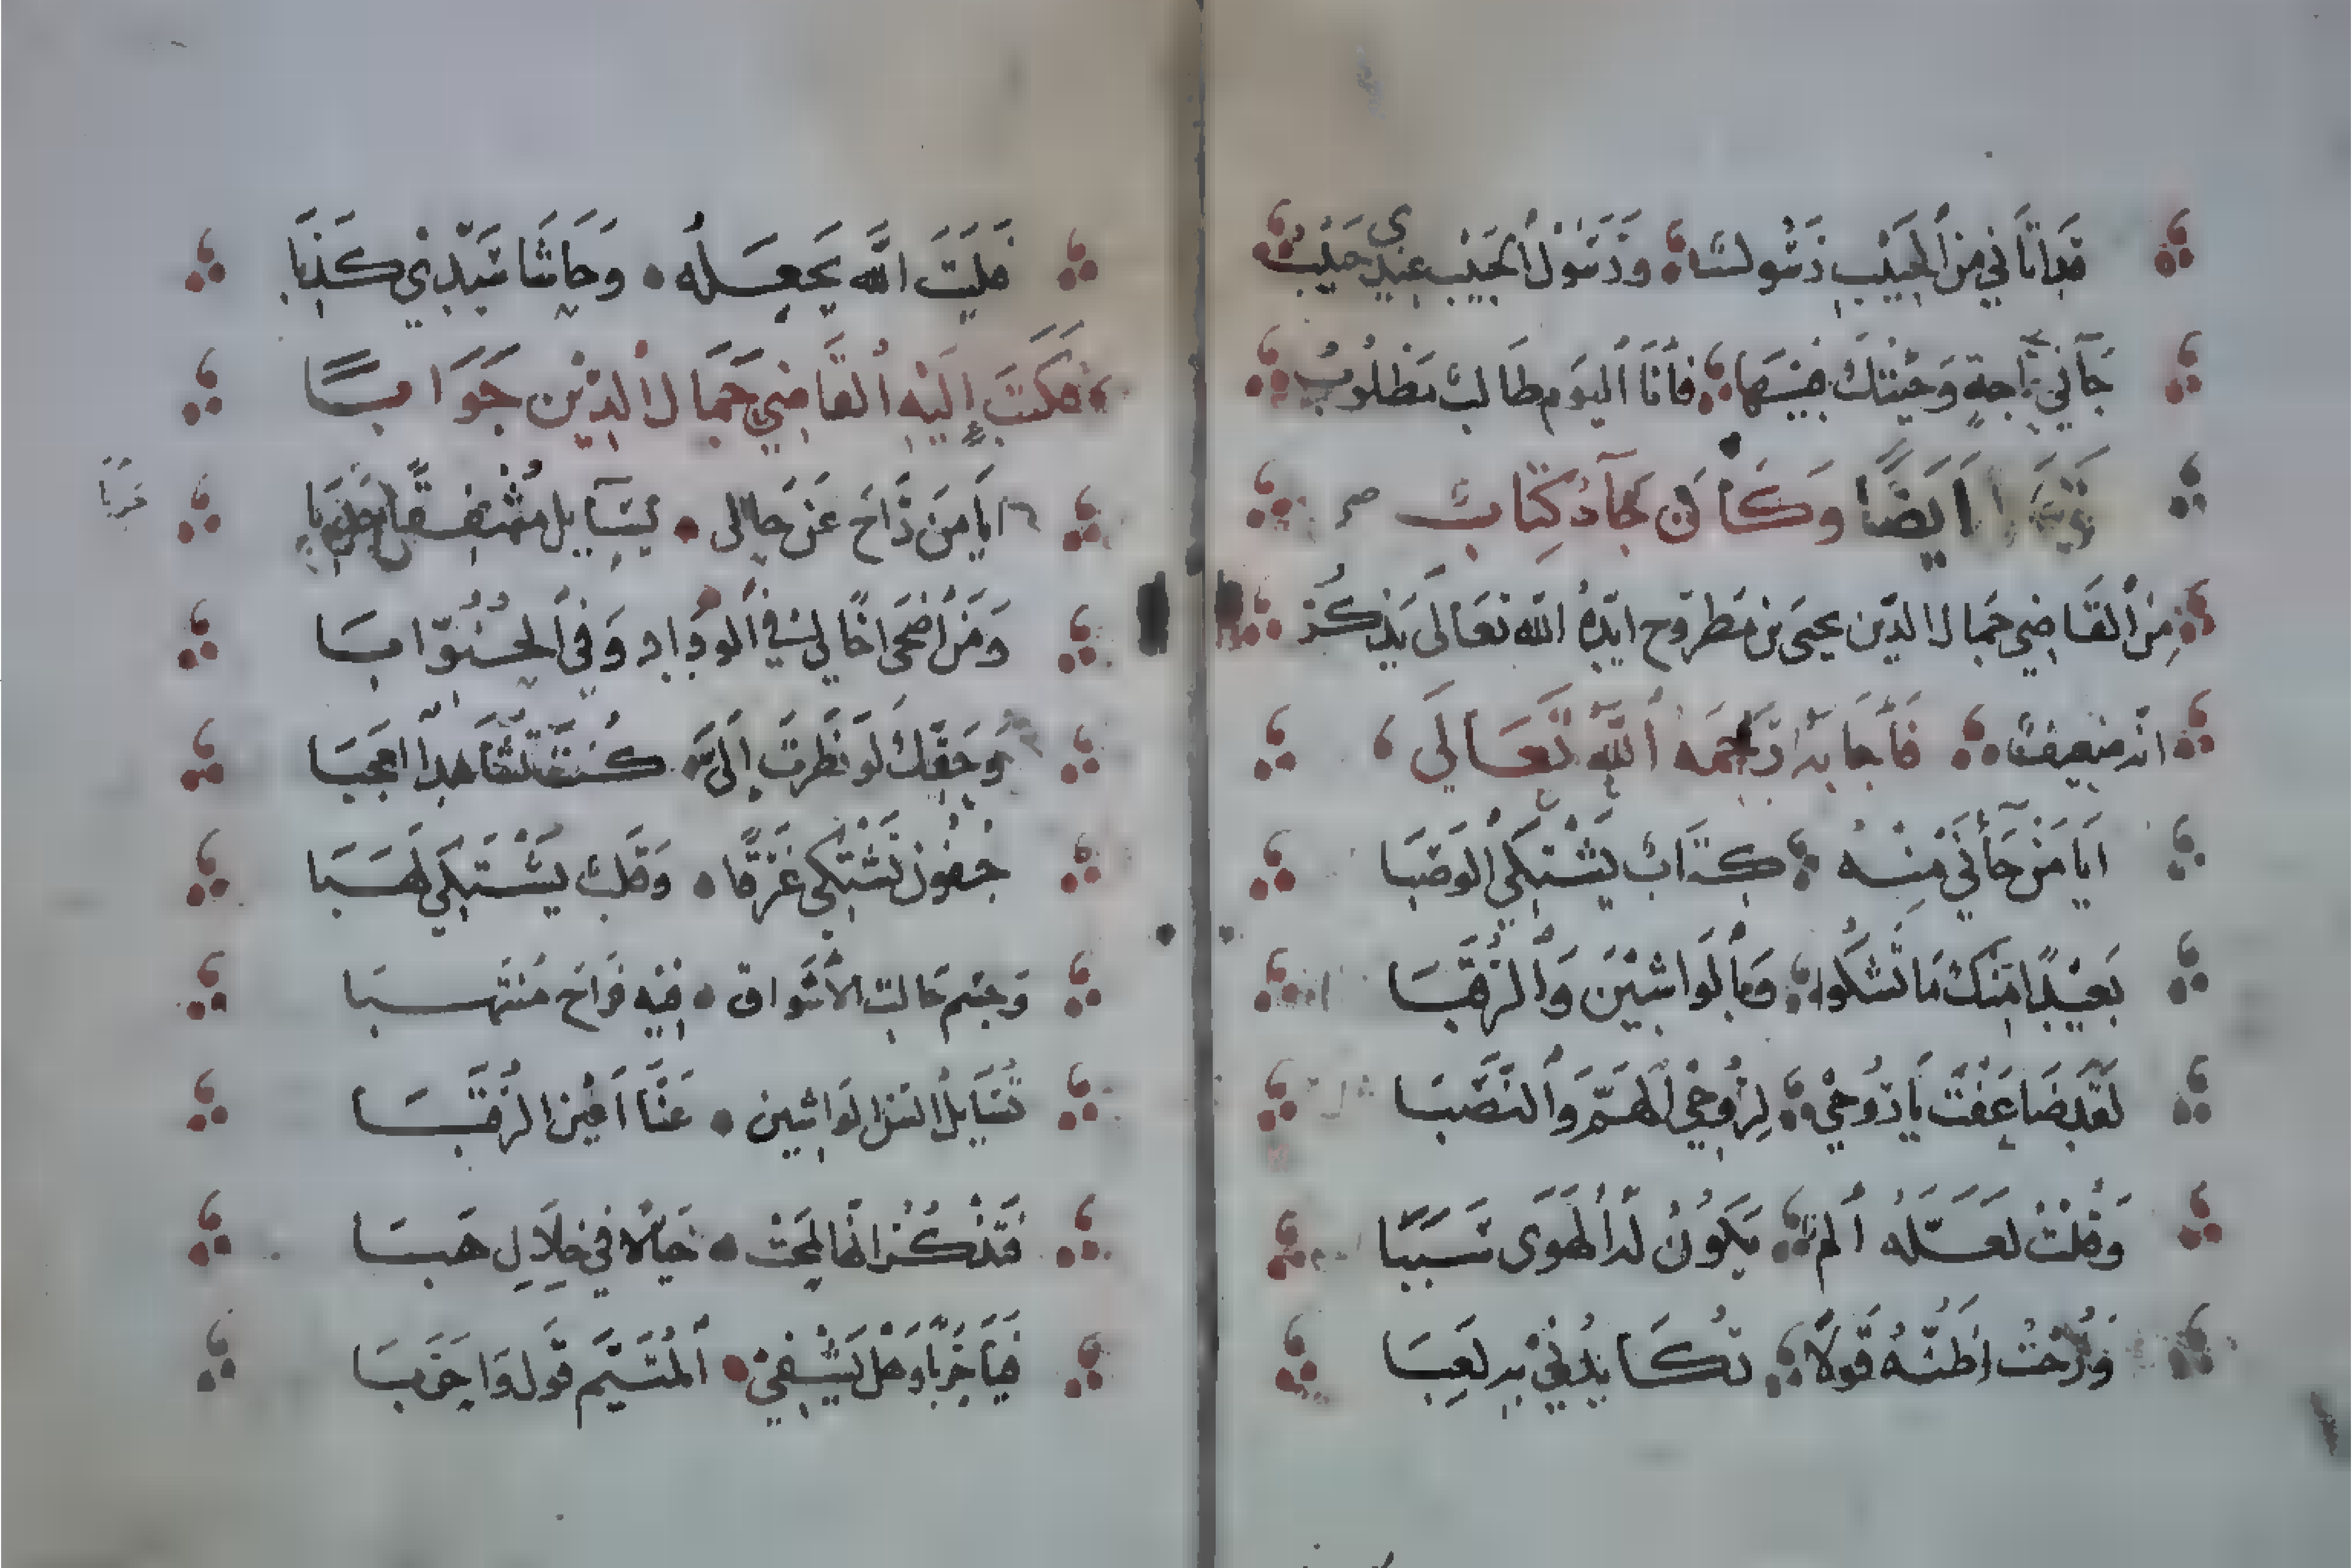 قَد اتَانِي مِنَ الحَبِيبِ رَسُولٌ وَرَسُولُ الحَبِيبِ عِنْدِي حَبِيبُ
جَآنِي وَجِئْتُكَ فِيهَا فَأَنَا اليَومَ طَالبٌ مَطْلُوبُ
ايَضًا وَكَانَ جَآءَ كِتَابٌ
مِنَ القَاضِي جَمَال الدّين يحيى بن مَطرُوح ايّدهُ الله تعَالَى يَذكُرُ
انّه ضعِيفٌ فَأَجَابَهُ رَحِمَه اللّه تَعَالَى
ايَا مَنْ جَآنِي مِنْهُ كِتَابٌ يَشْتَكِي الوَصَبَا
بَعِيْدًا مِنْكَ مَا تَشكُو وَبِالوَاشِيْنَ وَالرُّقَبَا
لَقَد ضَاعَفْتَ يَا رُوحِي لِرُوحِي الهَمَّ وَالنَّصَبَا
وَقُلْتُ لَعَلَّهُ أَلَمٌ يَكُونُ لَهُ الهَوَى سَبَبَا
وَرُحْتُ اظُنّهُ قَولاً تُدَاعِبُنِي بِهِ لَعِبَا
فَلَيتَ اللهَ يَجعَلُهُ وَحَاشَا سَيّدِي كَذبَا
فكتبَ إليْهِ القَاضِي جَمَال الدّين جَوَابًا
ايَا مَن رَاحَ عَن حَالِي يُسَايل مُشْفِقًا حَدِبَا
وَمَن اَضحَى اخًا لِي في الودَادِ وَفِي الحُنُوّ ابَا
وَحَقّكَ لَو نَظَرتَ إِلَيَّ كُنتَ تُشَاهِدُ العَجَبَا
جُفُونٌ تَشْتَكِي غَرَقًا وَقَلبٌ يَشْتَكِي لَهَبَا
وَجِسم جَالَت الأَشوَاق فِيْهِ فَرَاحَ مُنْتَهبَا
تُسَايلُ السنُ الوَاشِين عَنَّا اَعْيُنَ الرُّقَبَا
فَتَذْكُر انّهَا لمَحَتْ خَيَالاً فِي خِلَالِ هَبَا
فَيَا حَرَبَا وَهَل يَشْفِي المُتَيَّم قَول وَاحَرَبَا